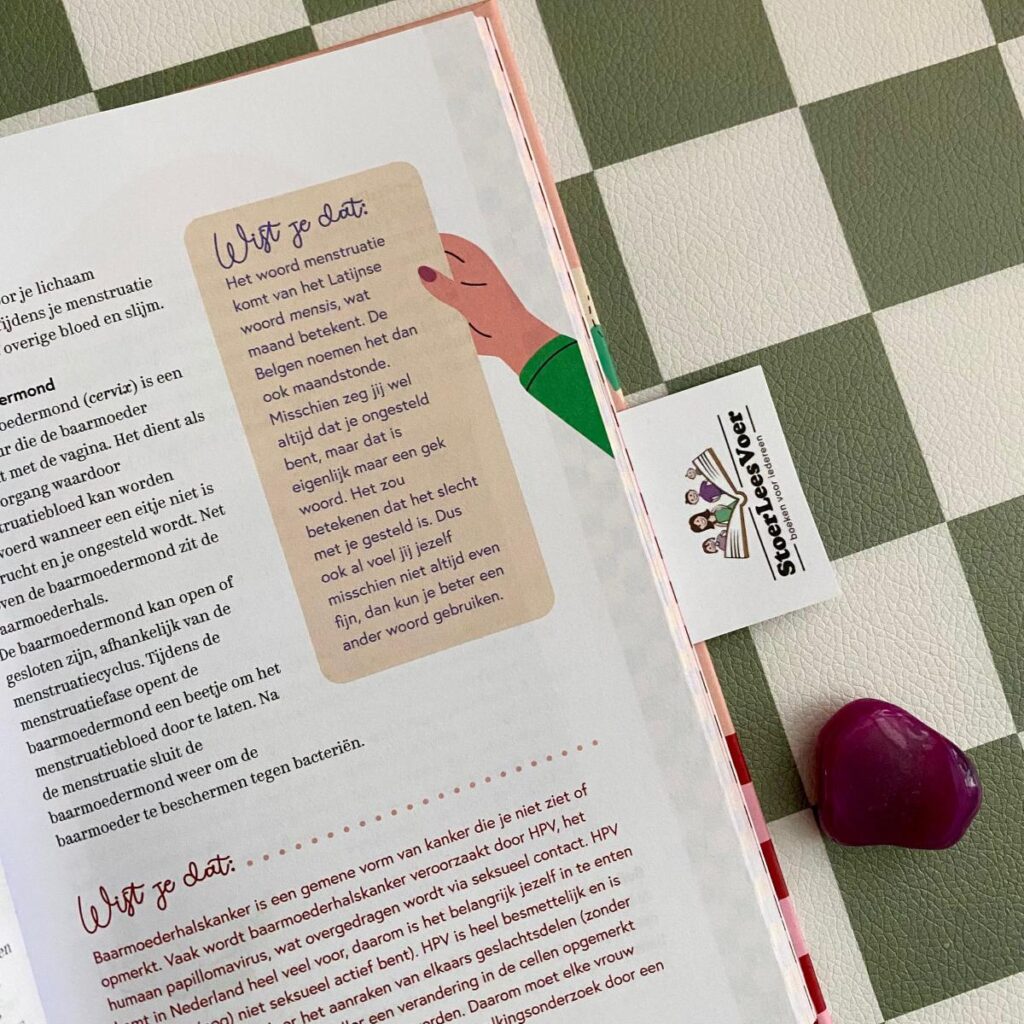 je lichaam
tijdens je menstruatie
overige bloed en slijm.
(cervix) is een
die de baarmoeder
met de vagina. Het dient als
waardoor
kan worden
wanneer een eitje niet is
en je ongesteld wordt. Net
de baarmoedermond zit de
De baarmoedermond kan open of
gesloten zijn, afhankelijk van de
menstruatiecyclus. Tijdens de
menstruatiefase opent de
baarmoedermond een beetje om het
menstruatiebloed door te laten. Na
de menstruatie sluit de
baarmoedermond weer om de
baarmoeder te beschermen tegen bacteriën.
Wist je dat:
Het woord menstruatie
komt van het Latijnse
woord mensis, wat
maand betekent. De
Belgen noemen het dan
ook maandstonde.
Misschien zeg jij wel
altijd dat je ongesteld
bent, maar dat is
eigenlijk maar een gek
woord. Het zou
betekenen dat het slecht
met je gesteld is. Dus
ook al voel jij jezelf
misschien niet altijd even
fijn, dan kun je beter een
ander woord gebruiken.
Wist je dat:
Baarmoederhalskanker is een gemene vorm van kanker die je niet ziet of
opmerkt. Vaak wordt baarmoederhalskanker veroorzaakt door HPV, het
humaan papillomavirus, wat overgedragen wordt via seksueel contact. HPV
komt in Nederland heel veel voor, daarom is het belangrijk jezelf in te enten
niet seksueel actief bent). HPV is heel besmettelijk en is
het aanraken van elkaars geslachtsdelen (zonder
een verandering in de cellen opgemerkt
Daarom moet elke vrouw
door een
StoerLeesVoer
boeken voor iedereen